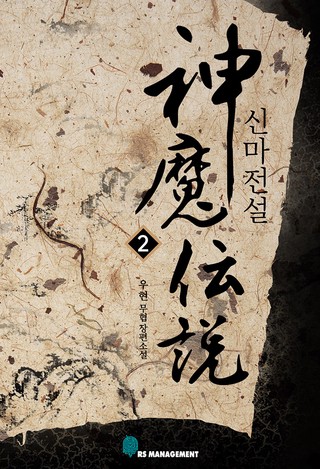 神魔伝説
신마전설
2
우현 무협 장편소설
RS MANAGEMENT